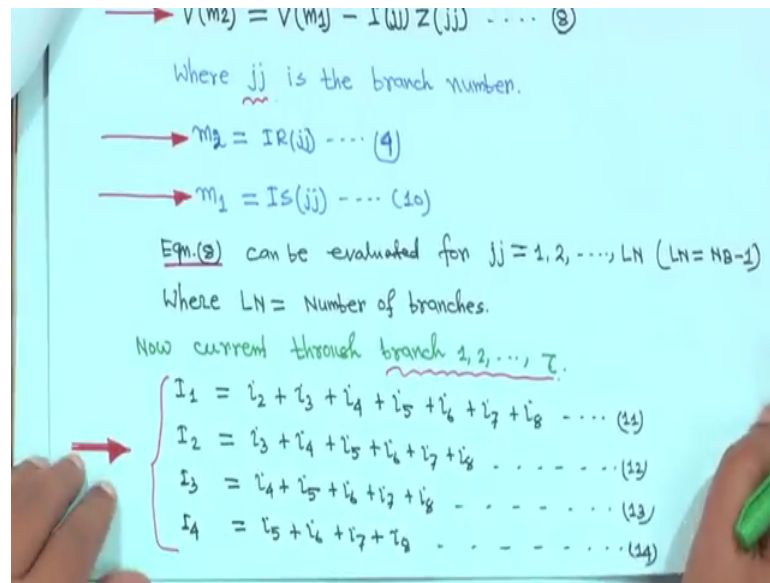 V(m2) = V(m1) - I(jj) Z(jj) ---- (8)
Where jj is the branch number.
m2 = IR(jj) ---- (9)
m1 = IS(jj) ---- (10)
Eqn.(8) can be evaluated for jj = 1, 2, ----, LN (LN = NB-1)
Where LN = Number of branches.
Now current through branch 1, 2, ..., 7.
I1 = i2 + i3 + i4 + i5 + i6 + i7 + i8 ---- (11)
I2 = i3 + i4 + i5 + i6 + i7 + i8 - - - - - - (12)
I3 = i4 + i5 + i6 + i7 + i8 - - - - - - - (13)
I4 = i5 + i6 + i7 + i8 - - - - - - - (14)